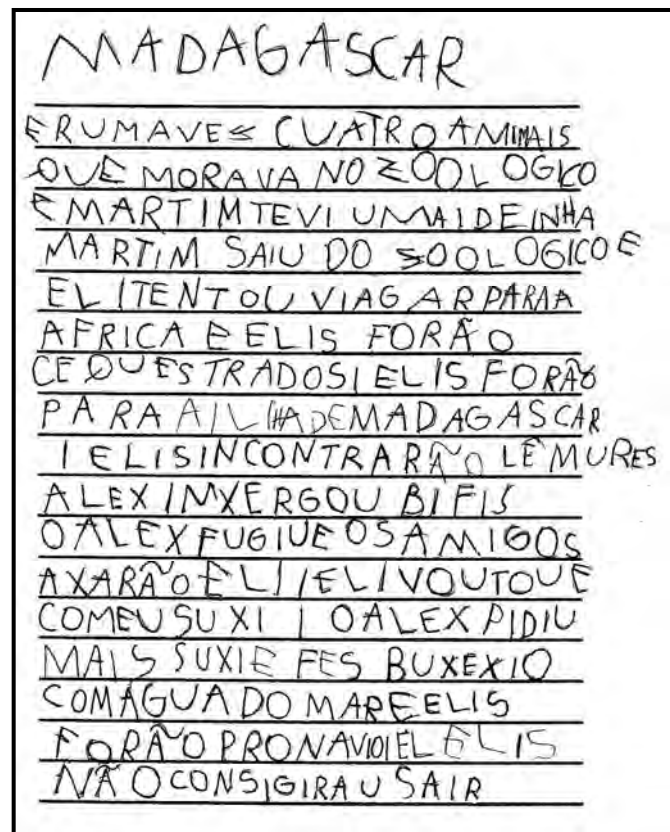 MADAGASCAR
ERUMAVES CUATRO ANIMAIS
QUE MORAVA NO ZOOLOGICO
E MARTIM TEVI UMA IDEINHA
MARTIM SAIU DO ZOOLOGICO E
ELI TENTOU VIAGAR PARA A
AFRICA E ELIS FORÃO
CEQUESTRADOS I ELIS FORÃO
PARA A ILHA DE MADAGASCAR
I ELIS INCONTRARÃO LÊMURES
ALEX INXERGOU BIFIS
O ALEX FUGIU E OS AMIGOS
AXARÃO ELI I ELI VOUTOU E
COMEU SUXI I O ALEX PIDIU
MAIS SUXI E FES BUXEXIO
COM ÁGUA DO MAR E ELIS
FORÃO PRO NAVIO I ELIS
NÃO CONSIGIRAU SAIR